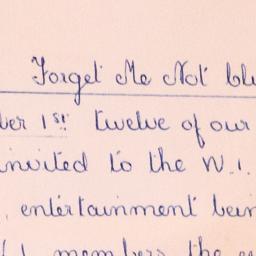 Forget Me Not blu
ber 1st twelve of our
invited to the W.I.
, entertainment bein
members the